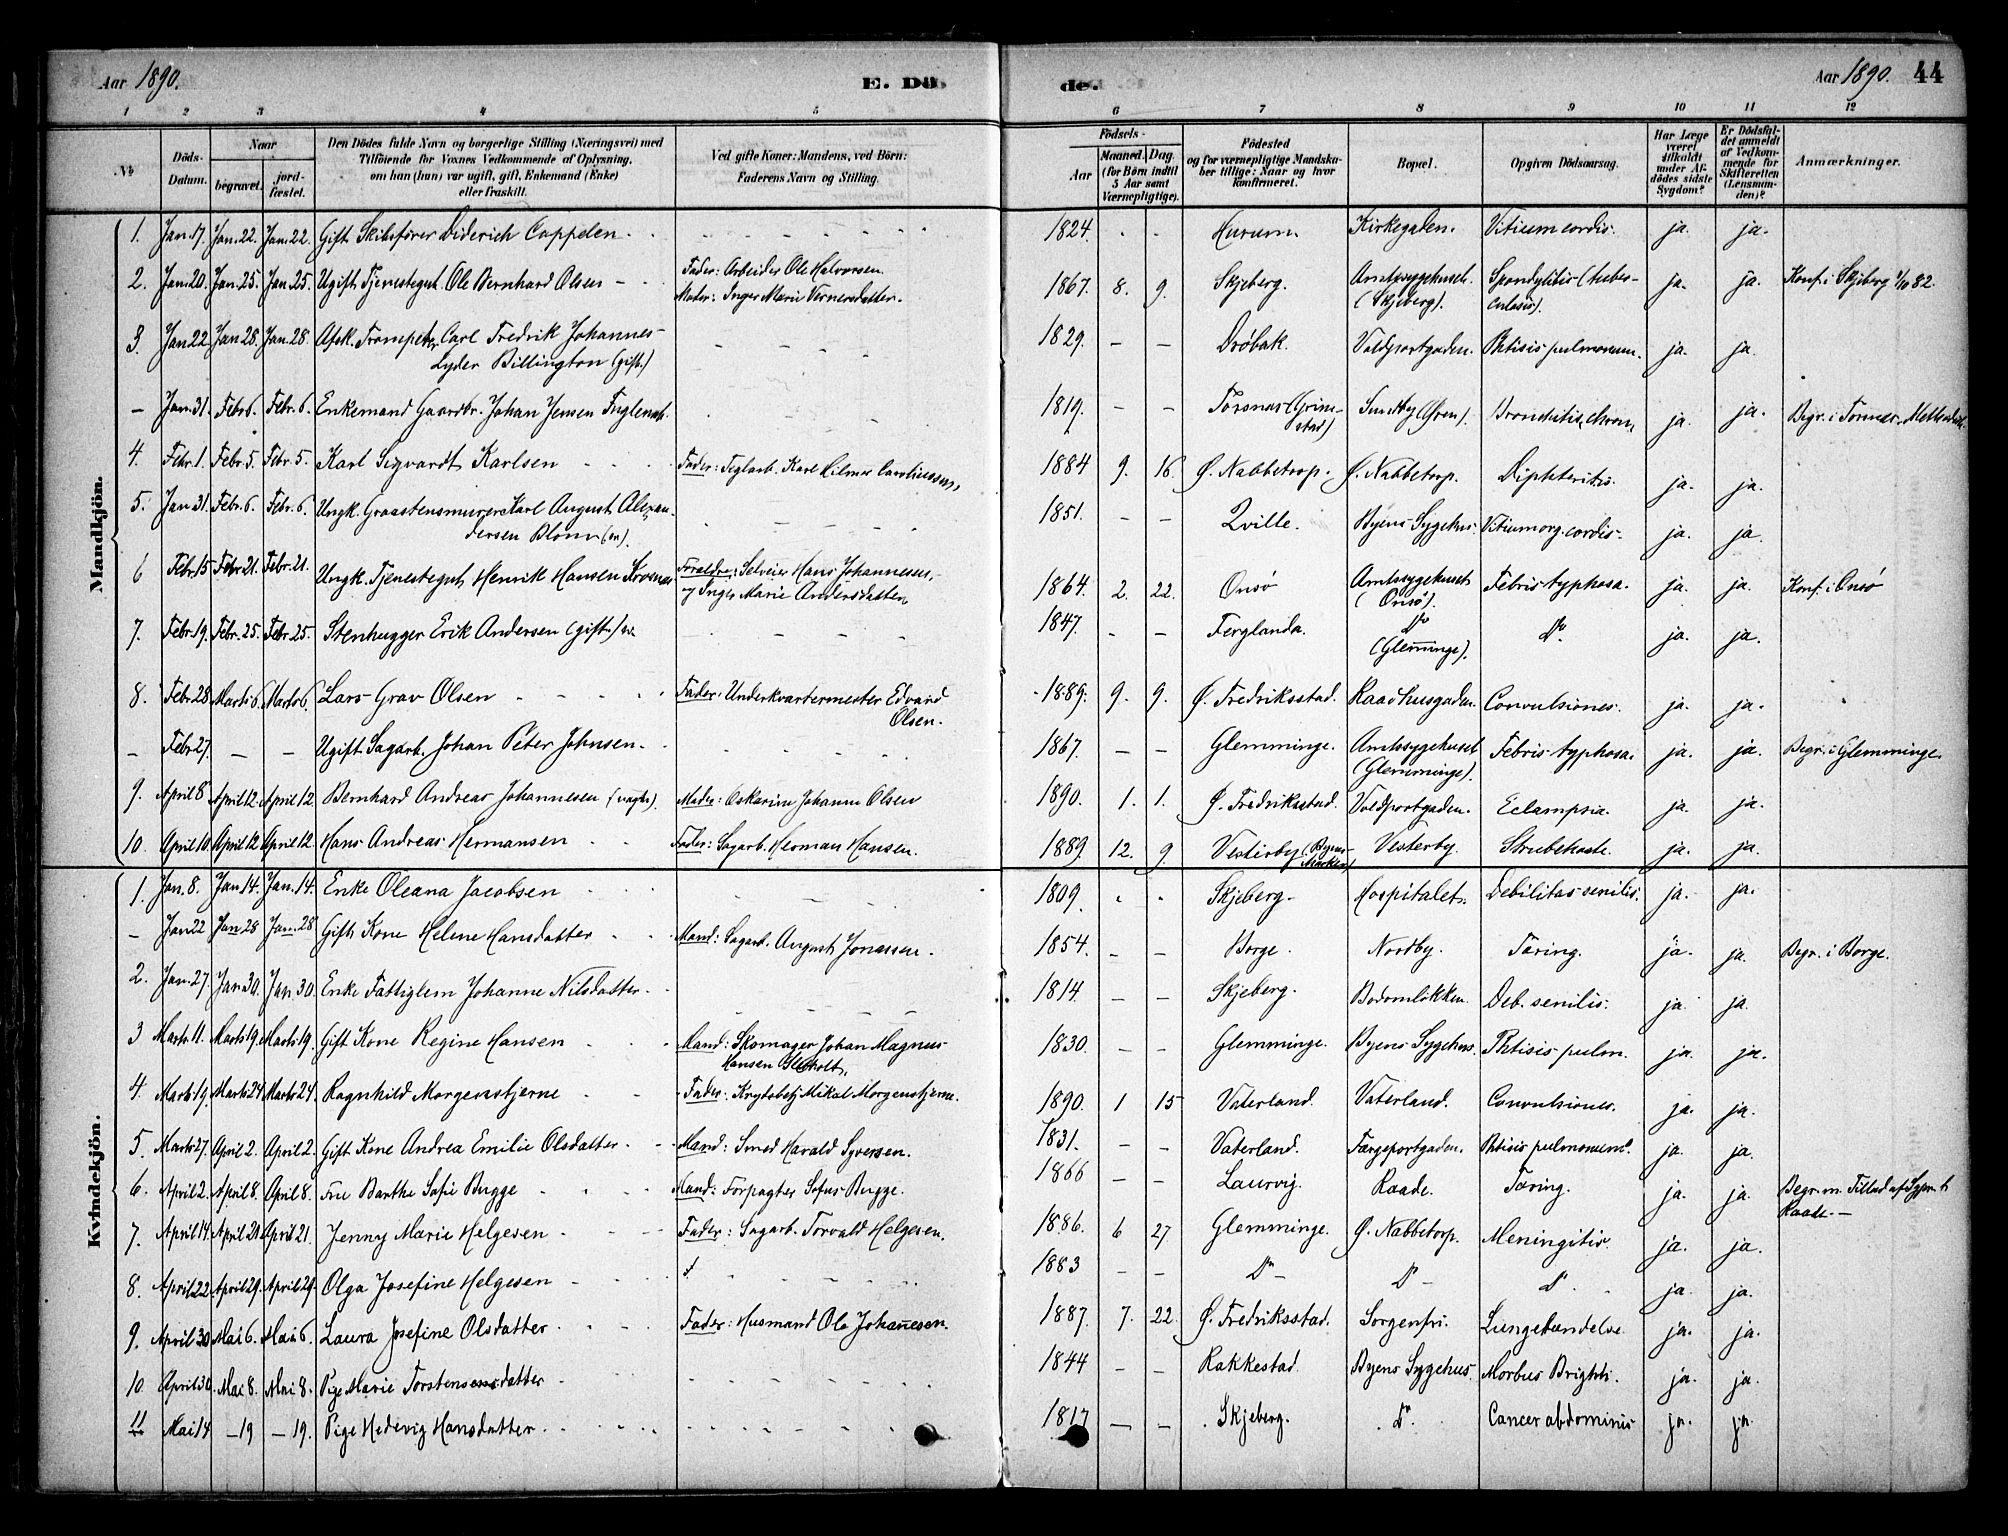 Aar 1890. E. Dö de. Aar 1890. 44
1 2 3 4 5 6 7 8 9 10 11 12
No Döds-Datum. Naar begravet. jordfæstet. Den Dödes fulde Navn og borgerlige Stilling (Næringsvei) med Tilföiende for Voxnes Vedkommende af Oplysning, om han (hun) var ugift, gift, Enkemand (Enke) eller fraskilt. Ved gifte Koner: Mandens, ved Börn: Faderens Navn og Stilling. Födsels- Aar Maaned. Dag. (for Börn indtil 5 Aar samt Værnepligtige). Födested og for værnepligtige Mandskaber tillige: Naar og hvor konfirmeret. Bopæl. Opgiven Dödsaarsag. Har Læge været tilkaldt under Afdödes sidste Sygdom? Er Dödsfaldet anmeldt af Vedkommende for Skifteretten (Lensmanden)? Anmærkninger.
Mandkjön.
1. Jan. 17. Jan. 22. Jan. 22. Gift Skibsfører Diderich Cappelen - - 1824. - - Hurum. Kirkegaden. Vitium cordis. ja. ja.
2. Jan. 20. Jan. 25. Jan. 25. Ugift Tjenestegut Ole Bernhard Olsen - Fader: Arbeider Ole Halvorsen. Moder: Inger Marie Vernersdatter. 1867. 8. 9. Skjeberg. Amtssygehuset (Skjeberg). Spondylitis (tuberculosis). ja. ja. Konf. i Skjeberg 1/10 82.
3. Jan 22 Jan 28. Jan. 28. Afsk. Trompeter Carl Fredrik Johannes Lyder Billington (gift.) 1829. - - Drøbak. Voldportgaden. Phtisis pulmonum. ja. ja.
- Jan. 31. Febr 6. Febr. 6. Enkemand Gaardbr. Johan Jensen 1819. - - Torsnæs (Grimstad) Sundby (Øren). Bronchitis chron. ja. ja. Begr. i Torsnæs.
4. Febr. 1. Febr. 5. Febr. 5. Karl Sigvardt Karlsen - - Fader: Teglarb. Karl Hilmer 1884 9. 16. Ø. Nabbetorp. Ø. Nabbetorp. Diphteritis. ja. ja.
5. Jan 31. Febr. 6. Febr. 6. Ungk. Graastensmurer Karl August Alexandersen Blom (sv). 1851. - - Qville. Byens Sygehus. Vitium org. cordis. ja. ja.
6 Febr. 15 Febr. 21. Febr. 21. Ungk. Tjenestegut Henrik Hansen Forældre: Selveier Hans Johannesen og Inger Marie Andersdatter 1864 2. 22. Onsø Amtssygehuset (Onsø). Febris typhosa. ja. ja. Konf. i Onsø
7. Febr. 19. Febr. 25. Febr. 25. Stenhugger Erik Andersen (gift.) sv. 1847. - - Ferglanda. Do (Glemminge). Do. ja. ja.
8. Febr. 28 Marts 6. Marts 6. Lars Grav Olsen - - Fader: Underkvartermester Edvard Olsen. 1889. 9. 9. Ø. Fredriksstad. Raadhusgaden. Convulsiones. ja. ja.
- Febr 27. - - Ugift Sagarb. Johan Peter Johnsen. 1867. - - Glemminge. Amtssygehuset (Glemminge). Febris typhosa. ja. ja. Begr. i Glemminge.
9. April 8 April 12. April 12 Bernhard Andreas Johannesen (uægte). Moder: Oskarine Johanne Olsen 1890. 1. 1. Ø. Fredriksstad. Voldportgaden. Eclampsia. ja. ja.
10. April 10 April 12 April 12. Hans Andreas Hermansen - - Fader: Sagarb. Herman Hansen. 1889. 12. 9. Vesterby (Byens Marker) Vesterby. Strubehoste. ja. ja.
Kvindekjön.
1. Jan. 8. Jan 14. Jan. 14. Enke Oleana Jacobsen - - 1809. - - Skjeberg. Hospitalet. Debilitas senilis. ja. ja.
- Jan 22 Jan 28 Jan. 28 Gift Kone Helene Hansdatter - - Mand: Sagarb. August Jonassen. 1854. - - Borge. Nordby. Tæring. ja. ja. Begr. i Borge.
2. Jan. 27. Jan 30. Jan. 30. Enke Fattiglem Johanne Nilsdatter - 1814. - - Skjeberg. Bodomløkken. Deb. senilis. ja. ja.
3 Marts 11. Marts 19. Marts 19. Gift Kone Regine Hansen - - Mand: Skomager Johan Magnus Hansen 1830. - - Glemminge. Byens Sygehus. Phtisis pulm. ja. ja.
4. Marts 19. Marts 24 Marts 24. Ragnhild Morgenstjerne - - Fader: Mikal Morgenstjerne. 1890. 1 15 Vaterland. Vaterland. Convulsiones. ja. ja.
5. Marts 27. April 2. April 2. Gift Kone Andrea Emilie Olsdatter - - Mand: Smed Harald Syversen. 1831. - - Vaterland. Færgeportgaden. Phtisis pulmonum. ja. ja.
6. April 2. April 8. April 8. Fru Barthe Sofie Bugge - - Mand: Forpagter Sofus Bugge. 1866 - - Laurvig. Raade. Tæring. ja. ja. Begr. m. Tillad. af Sgpr. t. Raade.-
7. April 14. April 21 April 21. Jenny Marie Helgesen - - Fader: Sagarb. Torvald Helgesen. 1886. 6 27 Glemminge. Ø. Nabbetorp. Meningitis. ja. ja.
8. April 22 April 29. April 29. Olga Josefine Helgesen - - 1883 - - Do - Do - Do. ja. ja.
9. April 30 Mai 6. Mai 6. Laura Josefine Olsdatter - - Fader: Husmand Ole Johannesen. 1887. 7. 22. Ø. Fredriksstad. Sorgenfri. Lungebetændelse. ja. ja.
10. April 30. Mai 8. Mai 8. Pige Marie Torstensdatter - 1844 - - Rakkestad. Byens Sygehus. Morbus Brighti. ja. ja.
11 Mai 14 -19 -19. Pige Hedevig Hansdatter - - 1817 - - Skjeberg. Do. Cancer abdominis ja. ja.